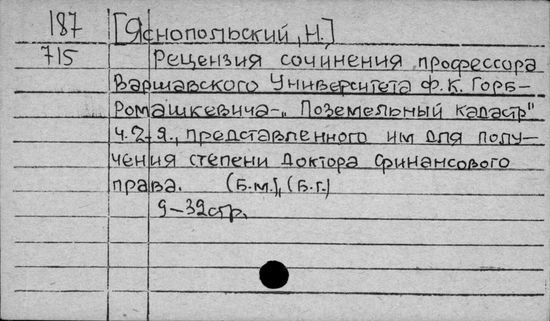 187 [Яснопольский, Н.]
715 Рецензия сочинения профессора
Варшавского Университета Ф.К. Горб-
Ромашкевича-„Поземельный кадастр"
ч.2-я., представленного им для полу-
чения степени Доктора финансового
права. (Б.м.), (Б.г.)
9-32стр.